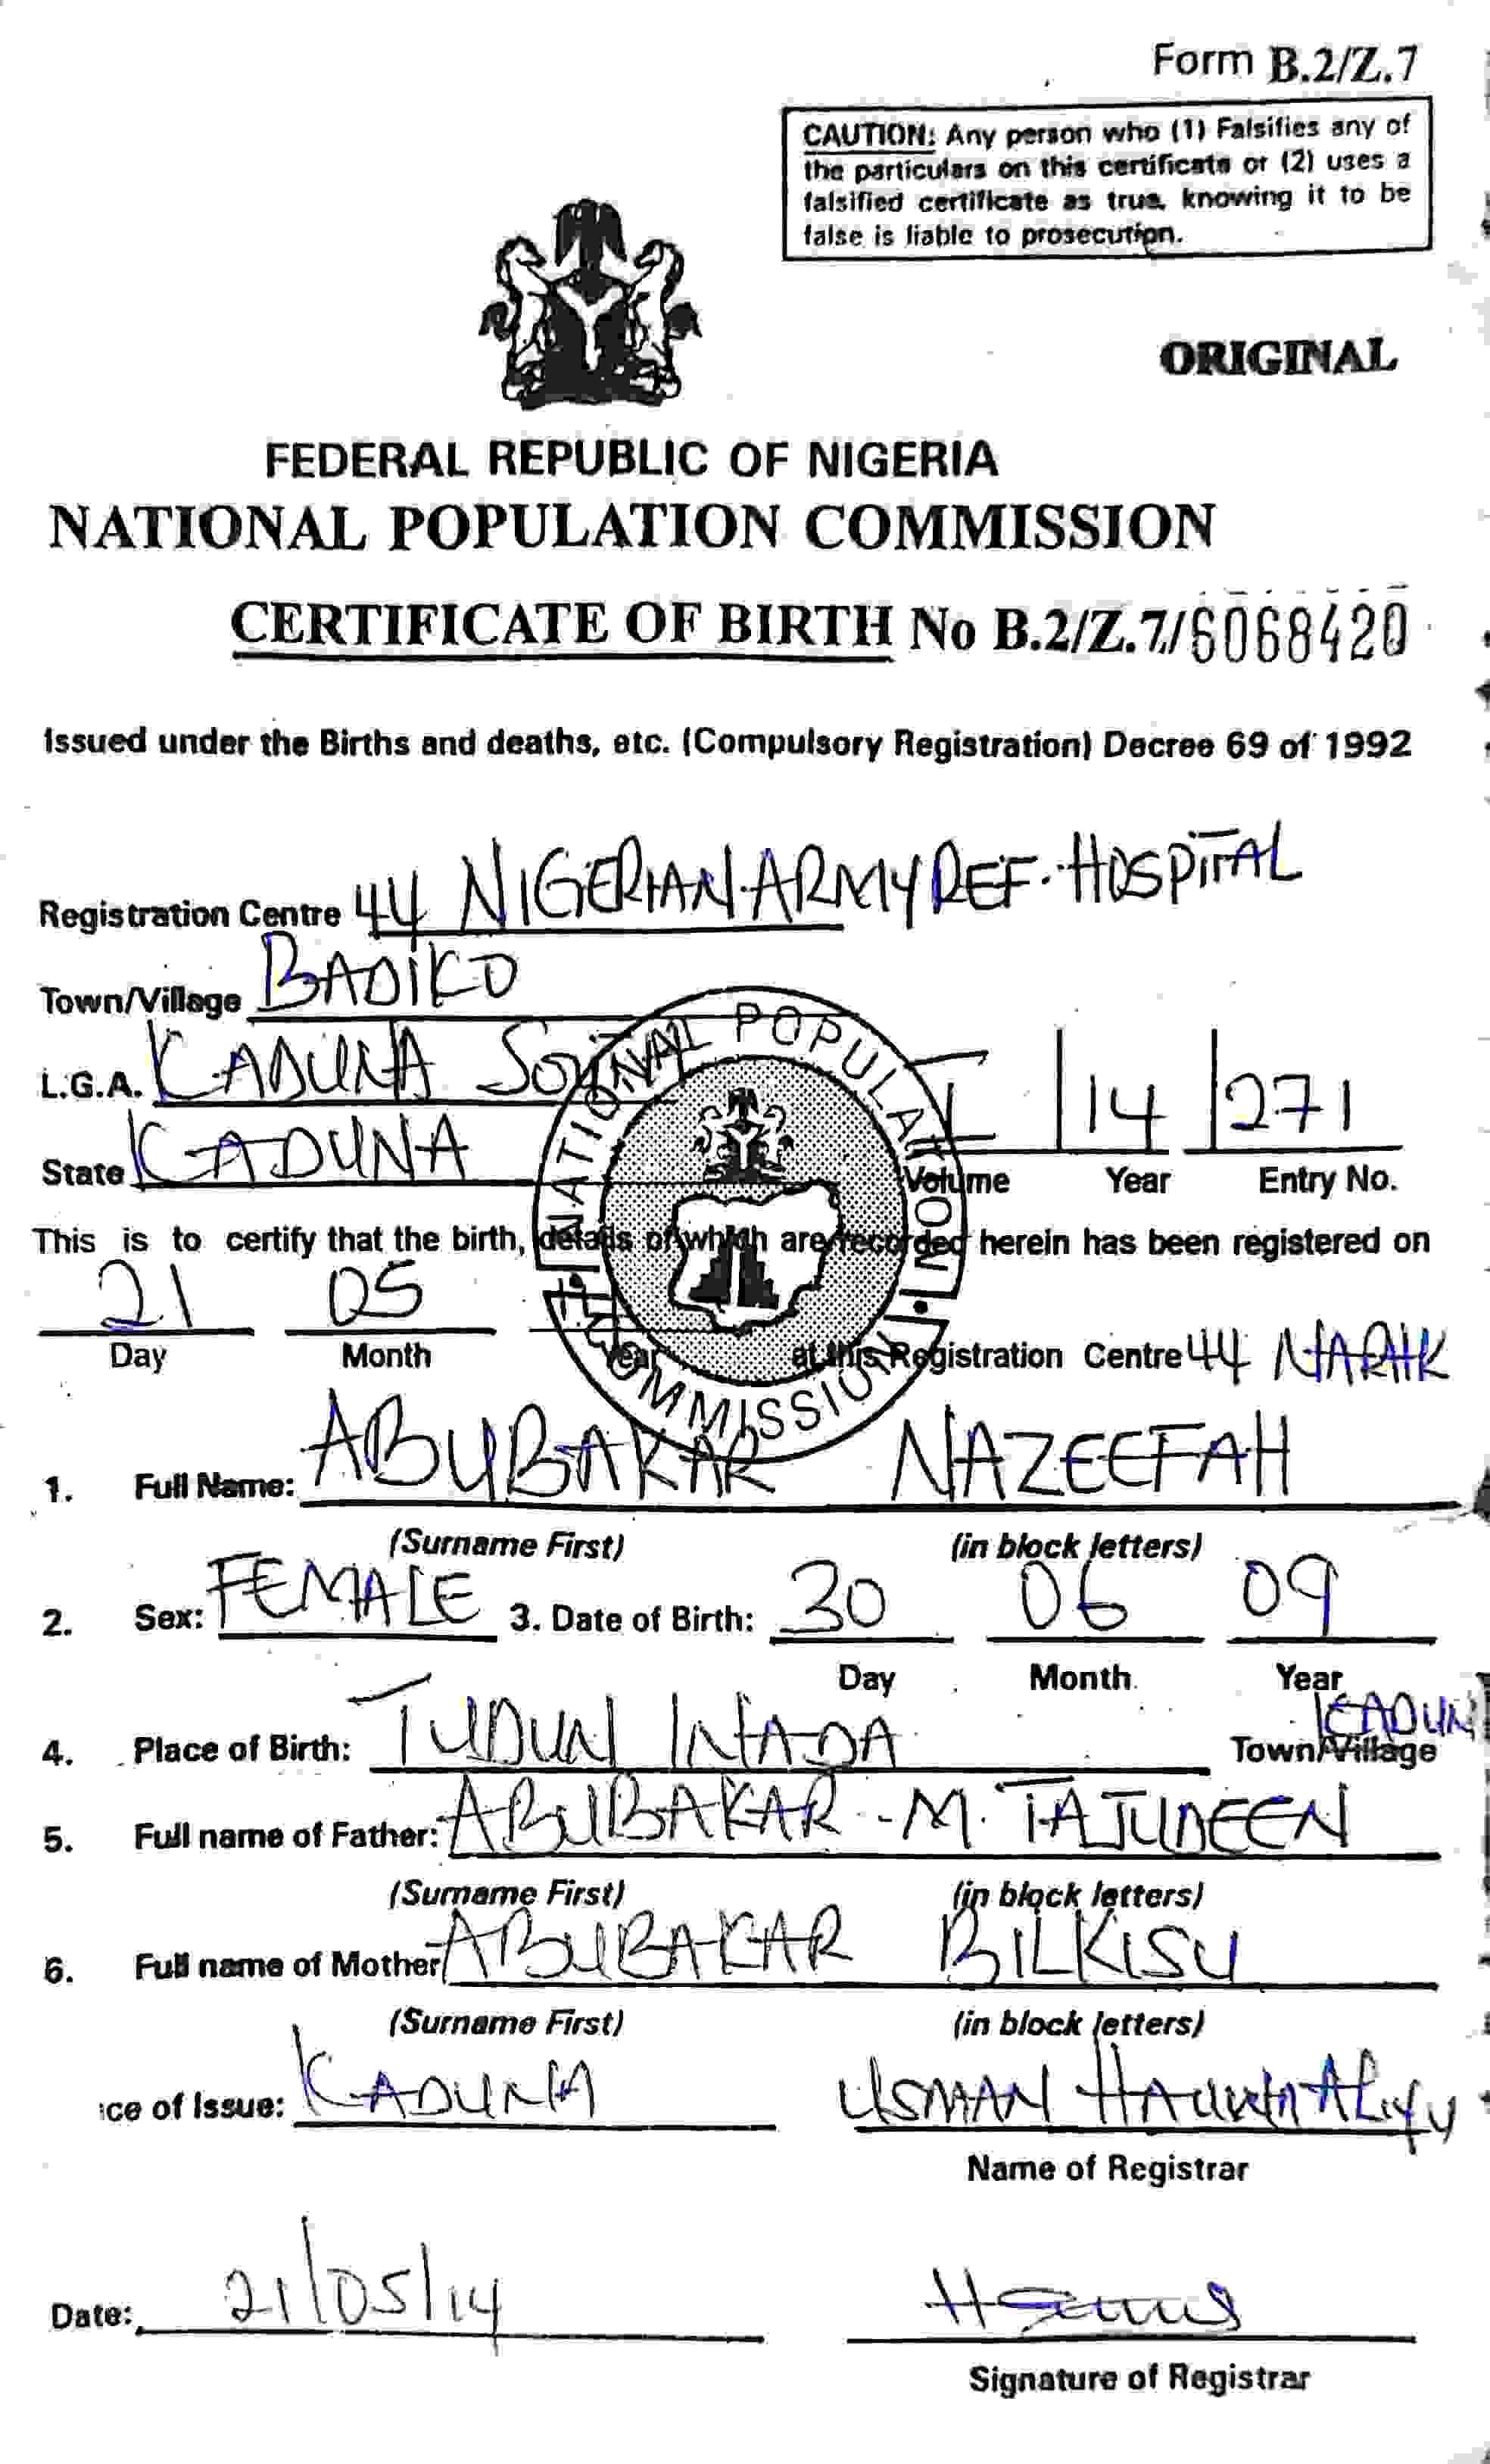 Form B.2/Z.7
CAUTION: Any person who (1) Falsifies any of
the particulars on this certificate or (2) uses a
falsified certificate as true, knowing it to be
false is liable to prosecution.
ORIGINAL
FEDERAL REPUBLIC OF NIGERIA
NATIONAL POPULATION COMMISSION
CERTIFICATE OF BIRTH No B.2/Z.7/6068420
Issued under the Births and deaths, etc. (Compulsory Registration) Decree 69 of 1992
Registration Centre 44 NIGERIAN ARMY REF. HOSPITAL
Town/Village BADIKO
L.G.A. KADUNA
State KADUNA
I 14 271
Volume Year Entry No.
NATIONAL POPULATION COMMISSION
This is to certify that the birth, details of which are recorded herein has been registered on
21 05
Day Month Year at this Registration Centre 44 NARHK
1. Full Name: ABUBAKAR NAZEEFAH
(Surname First) (in block letters)
2. Sex: FEMALE 3. Date of Birth: 30 06 09
Day Month Year
4. Place of Birth: TUDUN WADA Town/Village KADUN
5. Full name of Father: ABUBAKAR - M. TAJUDEEN
(Surname First) (in block letters)
6. Full name of Mother ABUBAKAR BILKISU
(Surname First) (in block letters)
ce of Issue: KADUNA USMAN HAUWA ALIYU
Name of Registrar
Date: 21/05/14
Signature of Registrar